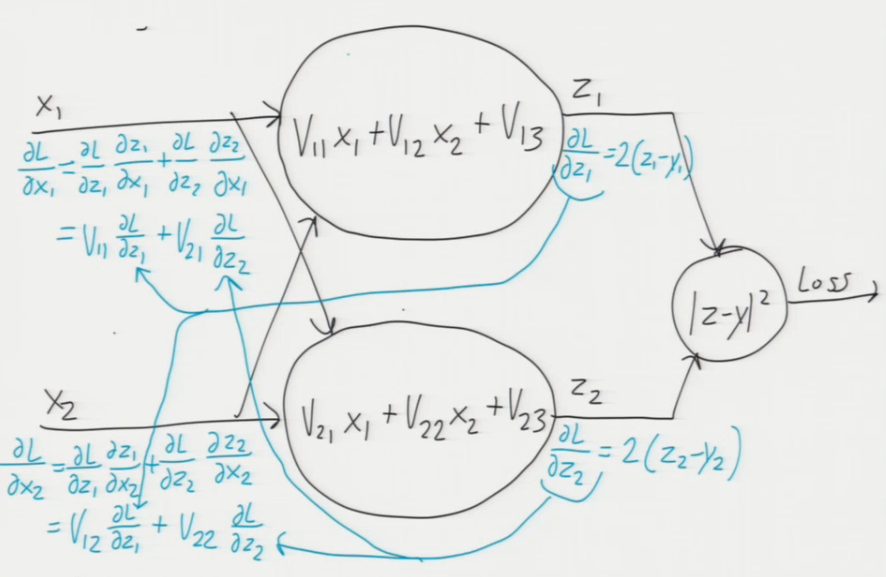 x₁
∂L/∂x₁ = ∂L/∂z₁ ∂z₁/∂x₁ + ∂L/∂z₂ ∂z₂/∂x₁
= V₁₁ ∂L/∂z₁ + V₂₁ ∂L/∂z₂
V₁₁x₁ + V₁₂x₂ + V₁₃
z₁
∂L/∂z₁ = 2(z₁-y₁)
|z-y|²
Loss
x₂
∂L/∂x₂ = ∂L/∂z₁ ∂z₁/∂x₂ + ∂L/∂z₂ ∂z₂/∂x₂
= V₁₂ ∂L/∂z₁ + V₂₂ ∂L/∂z₂
V₂₁x₁ + V₂₂x₂ + V₂₃
z₂
∂L/∂z₂ = 2(z₂-y₂)